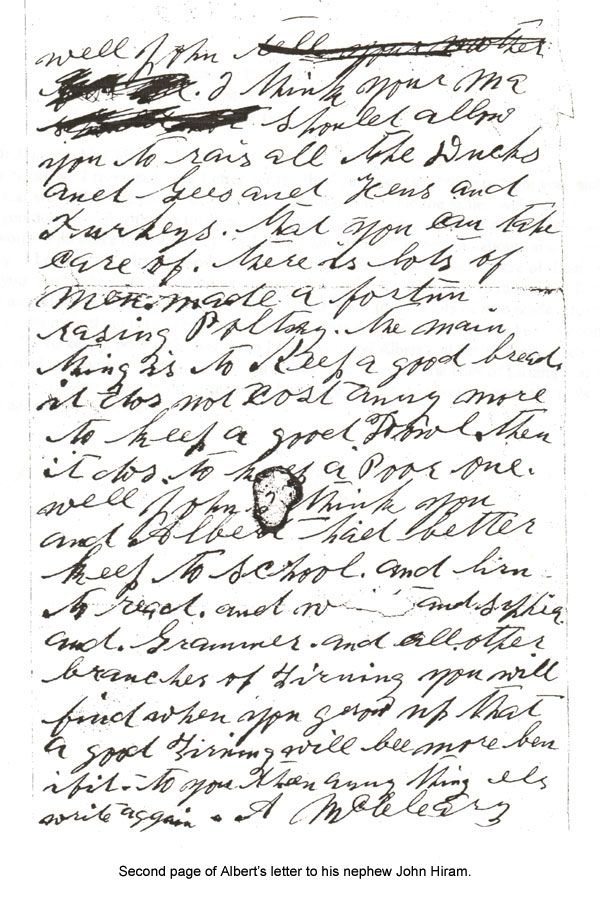 well John tell your mother
I think your Ma
should allow
you to rais all the Ducks
and Gees and Hens and
Turkeys. that you can take
care of. there is lots of
Men made a fortun
rasing Poltry. the main
thing is to Keep a good bread.
it dos not Cost anny more
to keep a good Fowl. then
it dos. to keep a Poor one.
well John I think you
and Albert had better
keep to School. and lirn
to read. and and siphier
and. Grammer. and all. other
branches of Lirning you will
find when you grow up that
a good Lirning will bee more ben
ibit to you then anny thing els
write aggain. A McCleary
Second page of Albert's letter to his nephew John Hiram.